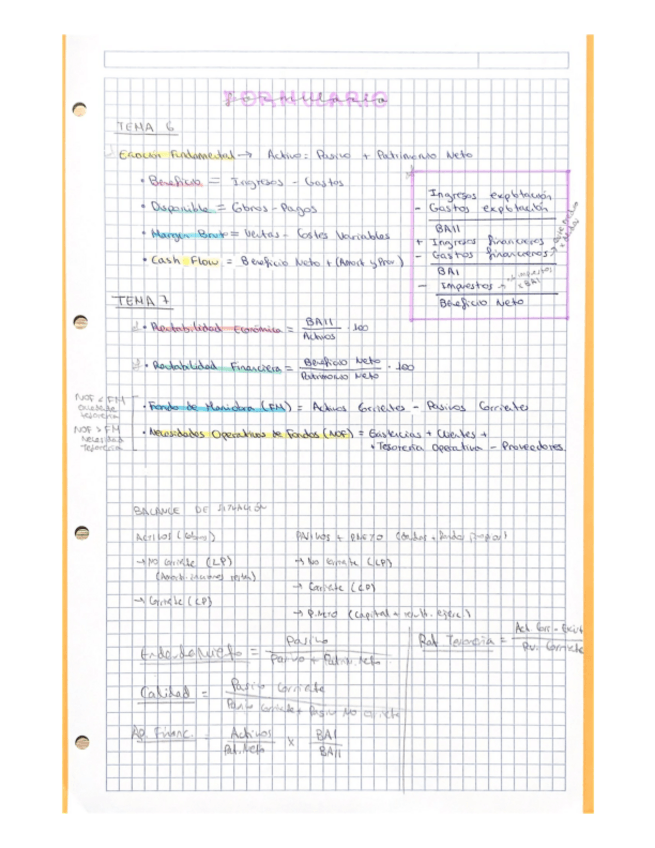 FORMULARIO
TEMA 6
Ecación Fundamental → Activo = Pasivo + Patrimonio Neto
• Beneficio = Ingresos - Gastos
• Disponible = Cobros - Pagos
• Margen Brut = Ventas - Costes Variables
• Cash Flow = Beneficio Neto + (Amort y Prov)
Ingresos explotación
- Gastos explotación
BAII
+ Ingresos financieros
- Gastos financieros
BAI
- Impuestos
Beneficio Neto
TEMA 7
• Rentabilidad Económica = BAII / Activos · 100
• Rentabilidad Financiera = Beneficio Neto / Patrimonio Neto · 100
NOF < FM
NOF > FM
Necesidad
tesorería
• Fondo de Maniobra (FM) = Activos Corrientes - Pasivos Corrientes
• Necesidades Operativas de Fondos (NOF) = Existencias + Clientes +
+ Tesorería operativa - Proveedores
BALANCE DE SITUACIÓN
→ No corriente (LP)
→ Corriente (CP)
→ No corriente (LP)
→ Corriente (CP)
→ P.Neto (Capital + result. ejerc)
Endeudamiento = Pasivo / Pasivo + Patrim. Neto
Calidad = Pasivo Corriente / Pasivo Corriente + Pasivo No corriente
Ap. Financ. = Activos / Pat. Neto x BAI / BAII
Rat Tesorería =